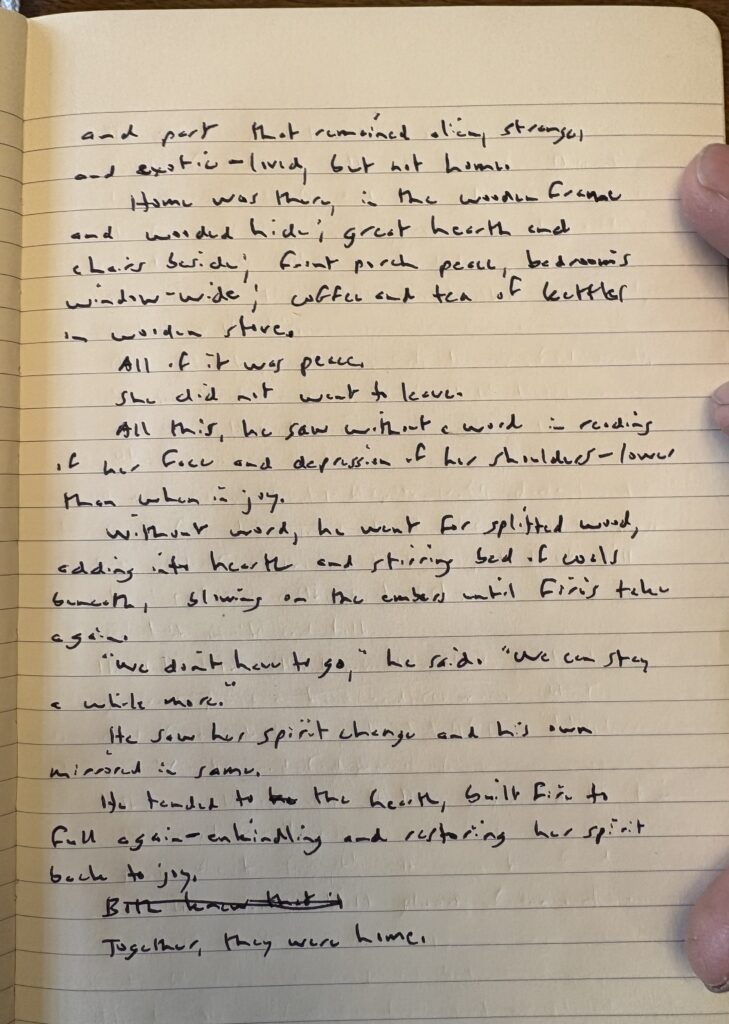 and part that remained alien, strange,
and exotic-lived, but not home.
Home was there, in the wooden frame
and wooded hide; great hearth and
chairs beside; front porch peace, bedrooms
window-wide; coffee and tea of kettles
in wooden stove.
All of it was peace.
She did not want to leave.
All this, he saw without a word in reading
of her face and depression of her shoulders-lower
than when in joy.
Without word, he went for splitted wood,
adding into hearth and stirring bed of coals
beneath, blowing on the embers until fires take
again.
"We don't have to go," he said. "We can stay
a while more."
He saw her spirit change and his own
mirrored in same.
He tended to the hearth, built fire to
full again-enkindling and restoring her spirit
back to joy.
Both knew that i
Together, they were home.